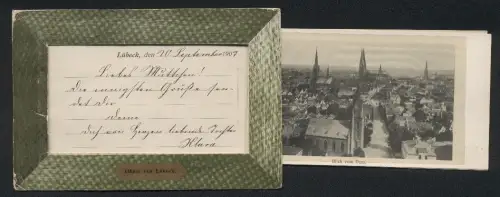 Lübeck, den 20. September 1907
Liebes Müttchen!
Die innigsten Grüße sen-
det dir
deine
dich von Herzen liebende Tochter
Klara
Album von Lübeck.
Blick vom Dom